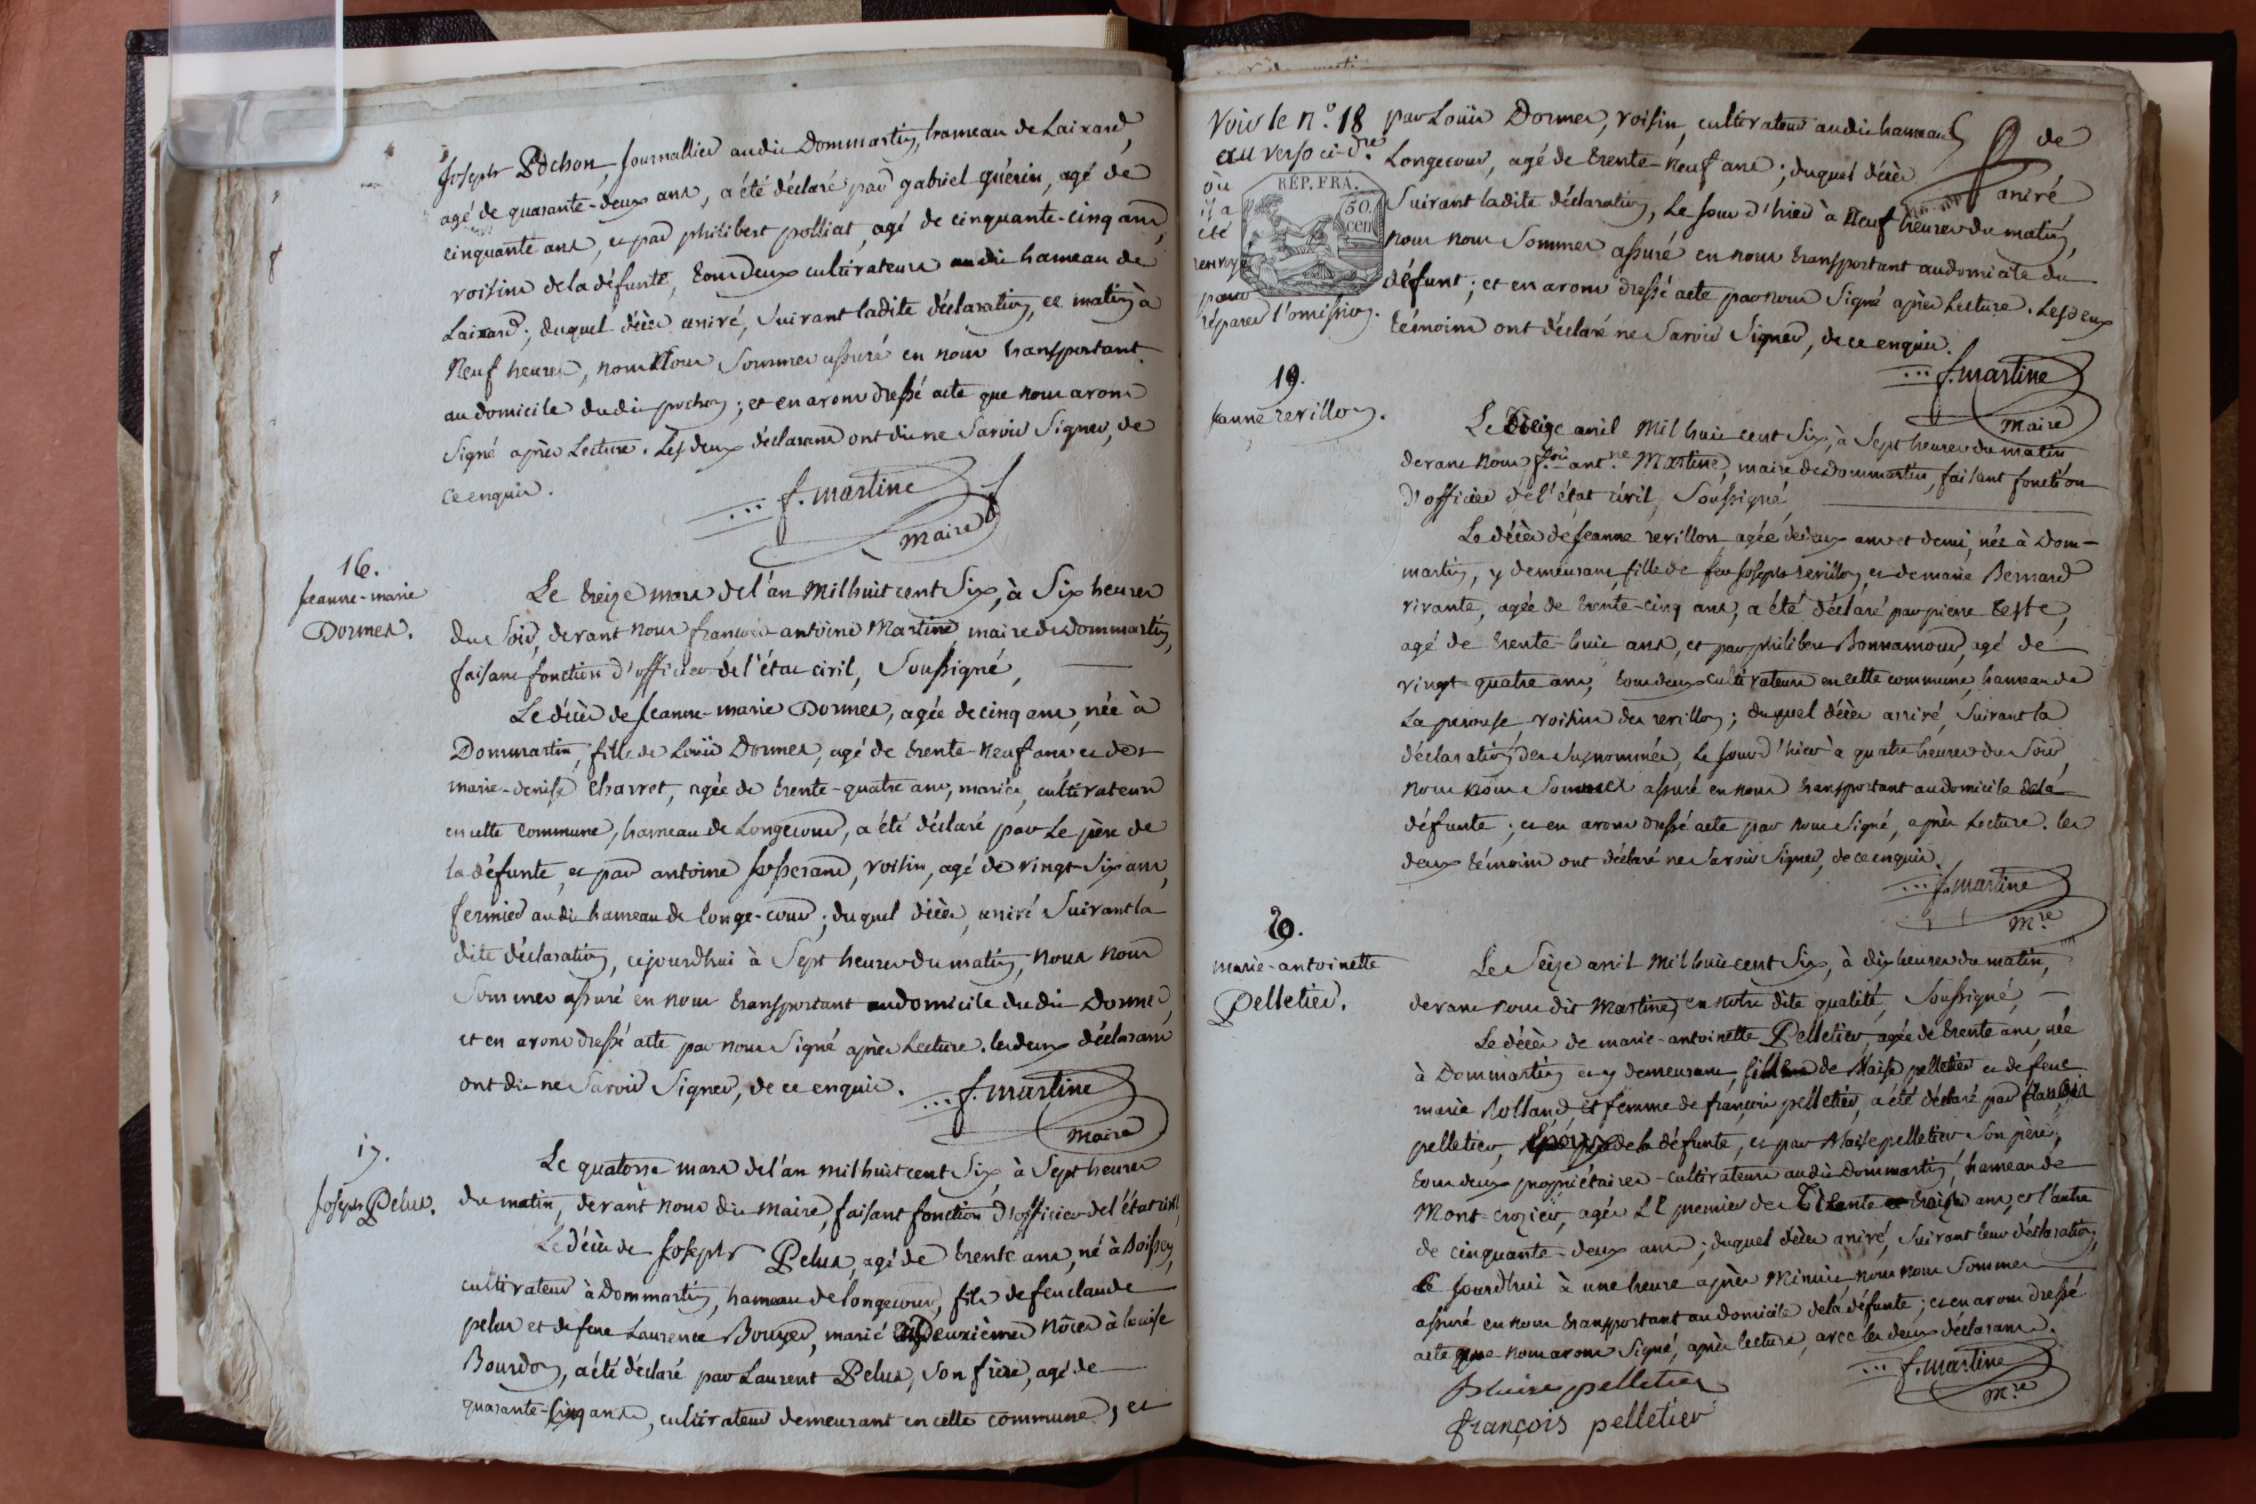 Joseph Pochon, journallier audit Dommartin, hameau de Laixard,
agé de quarante-deux ans, a été déclaré par gabriel guérin, agé de
cinquante ans, et par philibert polliat, agé de cinquante-cinq ans,
voisins de la défunte, tous deux cultivateurs audit hameau de
Laixard; duquel décès arrivé, suivant ladite déclaration, ce matin à
Neuf heures, nous Nous sommes assuré en nous transportant
au domicile dudit pochon; et en avons dressé acte que nous avons
signé après Lecture. Les deux déclarans ont dit ne savoir signer, de
ce enquis.
f. martine
maire
16.
jeanne-marie
Dormes.
Le treize mars de l'an Mil huit cent Six, à Six heures
du Soir, devant nous françois-antoine Martine, maire de dommartin,
faisant fonction d'officier de l'état civil, Soussigné,
Le décès de jeanne-marie Dormes, agée de cinq ans, née à
Dommartin, fille de Louis Dormes, agé de trente-Neuf ans et de
marie-denise Charvet, agée de trente-quatre ans, mariés, cultivateurs
en cette commune, hameau de Longecour, a été déclaré par Le père de
la défunte, et par antoine josserand, voisin, agé de vingt-Six ans,
fermier audit hameau de longe-cour; duquel décès, arrivé Suivant la
dite déclaration, cejourdhui à Sept heures du matin, nous nous
Sommes assuré en nous transportant au domicile dudit Dormes,
et en avons dressé acte par nous Signé après Lecture. les deux déclarans
ont dit ne Savoir Signer, de ce enquis.
f. martine
maire
17.
joseph Pelus.
Le quatorze mars de l'an mil huit cent Six, à Sept heures
du matin, devant nous dit maire, faisant fonction d'officier de l'état civil,
Le décès de joseph Pelus, agé de trente ans, né à Boissey,
cultivateur à Dommartin, hameau de longecour, fils de feu claude
pelus et de feue Laurence Bouyer, marié en deuxièmes Nôces à louise
Bourdon, a été déclaré par Laurent Pelus, Son frère, agé de
quarante-cinq ans, cultivateur demeurant en cette commune, et
Voir le n.º 18
au verso ci-d.re
où
il a
été
renvoyé
pour
réparer l'omission.
RÉP. FRA.
50
cen
par Louis Dormes, voisin, cultivateur audit hameau de
Longecour, agé de trente-Neuf ans; duquel décès arrivé
Suivant ladite déclaration, Le jour d'hier à Neuf heures du matin,
nous nous Sommes assuré en nous transportant au domicile du
défunt; et en avons dressé acte par nous Signé après Lecture. Les deux
témoins ont déclaré ne Savoir Signer, de ce enquis.
f. martine
maire
19.
jeanne revillon.
Le treize avril Mil huit cent Six, à Sept heures du matin
devant nous f.ois ant.ne Martine, maire de Dommartin, faisant fonction
d'officier de l'état civil, Soussigné,
Le décès de jeanne revillon, agée de deux ans et demi, née à Dom-
martin, y demeurant, fille de feu joseph revillon, et de marie Bernard
vivante, agée de trente-cinq ans, a été déclaré par pierre teste,
agé de trente-huit ans, et par philibert Bonnamour, agé de
vingt-quatre ans, tous deux cultivateurs en cette commune, hameau de
La perouse voisins des revillon; duquel décès arrivé, Suivant la
déclaration des Susnommés, Le jour d'hier à quatre heures du Soir,
nous nous Sommes assuré en nous transportant au domicile de la
défunte; et en avons dressé acte par nous Signé, après Lecture. les
deux témoins ont déclaré ne Savoir Signer, de ce enquis.
f. martine
m.re
20.
marie-antoinette
Pelletier.
Le Seize avril Mil huit cent Six, à dix heures du matin,
devant nous dit Martine, en notre dite qualité, Soussigné,
Le décès de marie-antoinette Pelletier, agée de trente ans, née
à Dommartin et y demeurant, fille de Blaise pelletier et de feue
marie Rolland, et femme de françois pelletier, a été déclaré par françois
pelletier, époux de la défunte, et par Blaise pelletier son père,
tous deux propriétaires-cultivateurs audit Dommartin, hameau de
Mont-crozier, agés Le premier de trente ans, et l'autre
de cinquante-deux ans; duquel décès arrivé, Suivant leur déclaration,
ce jourdhui à une heure après Minuit nous nous Sommes
assuré en nous transportant au domicile de la défunte; et en avons dressé
acte que nous avons Signé, après lecture, avec les deux déclarans.
f. martine
m.re
Blaise pelletier
françois pelletier